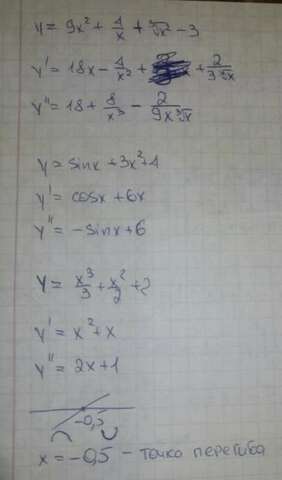 y = 9x² + 4/x + ∛x² - 3
y' = 18x - 4/x² + 2/3∛x
y'' = 18 + 8/x³ - 2/9x∛x
y = sinx + 3x² + 4
y' = cosx + 6x
y'' = -sinx + 6
y = x³/3 + x²/2 + 2
y' = x² + x
y'' = 2x + 1
-0,5
x = -0,5 - точка перегиба